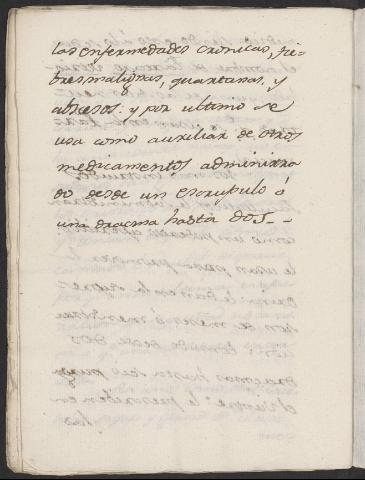 las enfermedades cronicas, fie-
bres malignas, quartanas, y
abscesos. y por ultimo se
usa como auxiliar de otros
medicamentos administra
do desde un escrupulo á
una dracma hasta dos-